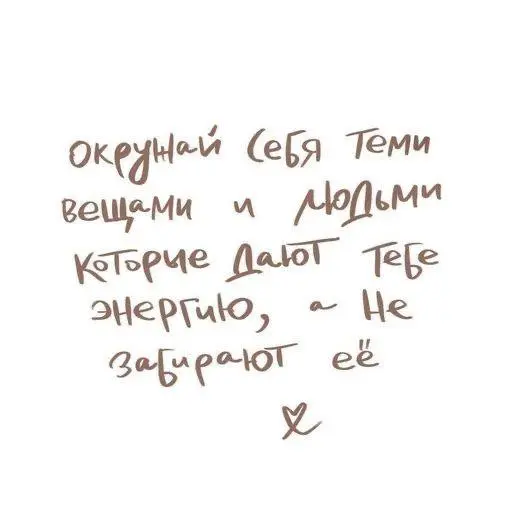 окружай себя теми
вещами и людьми
которые дают тебе
энергию, а не
забирают её